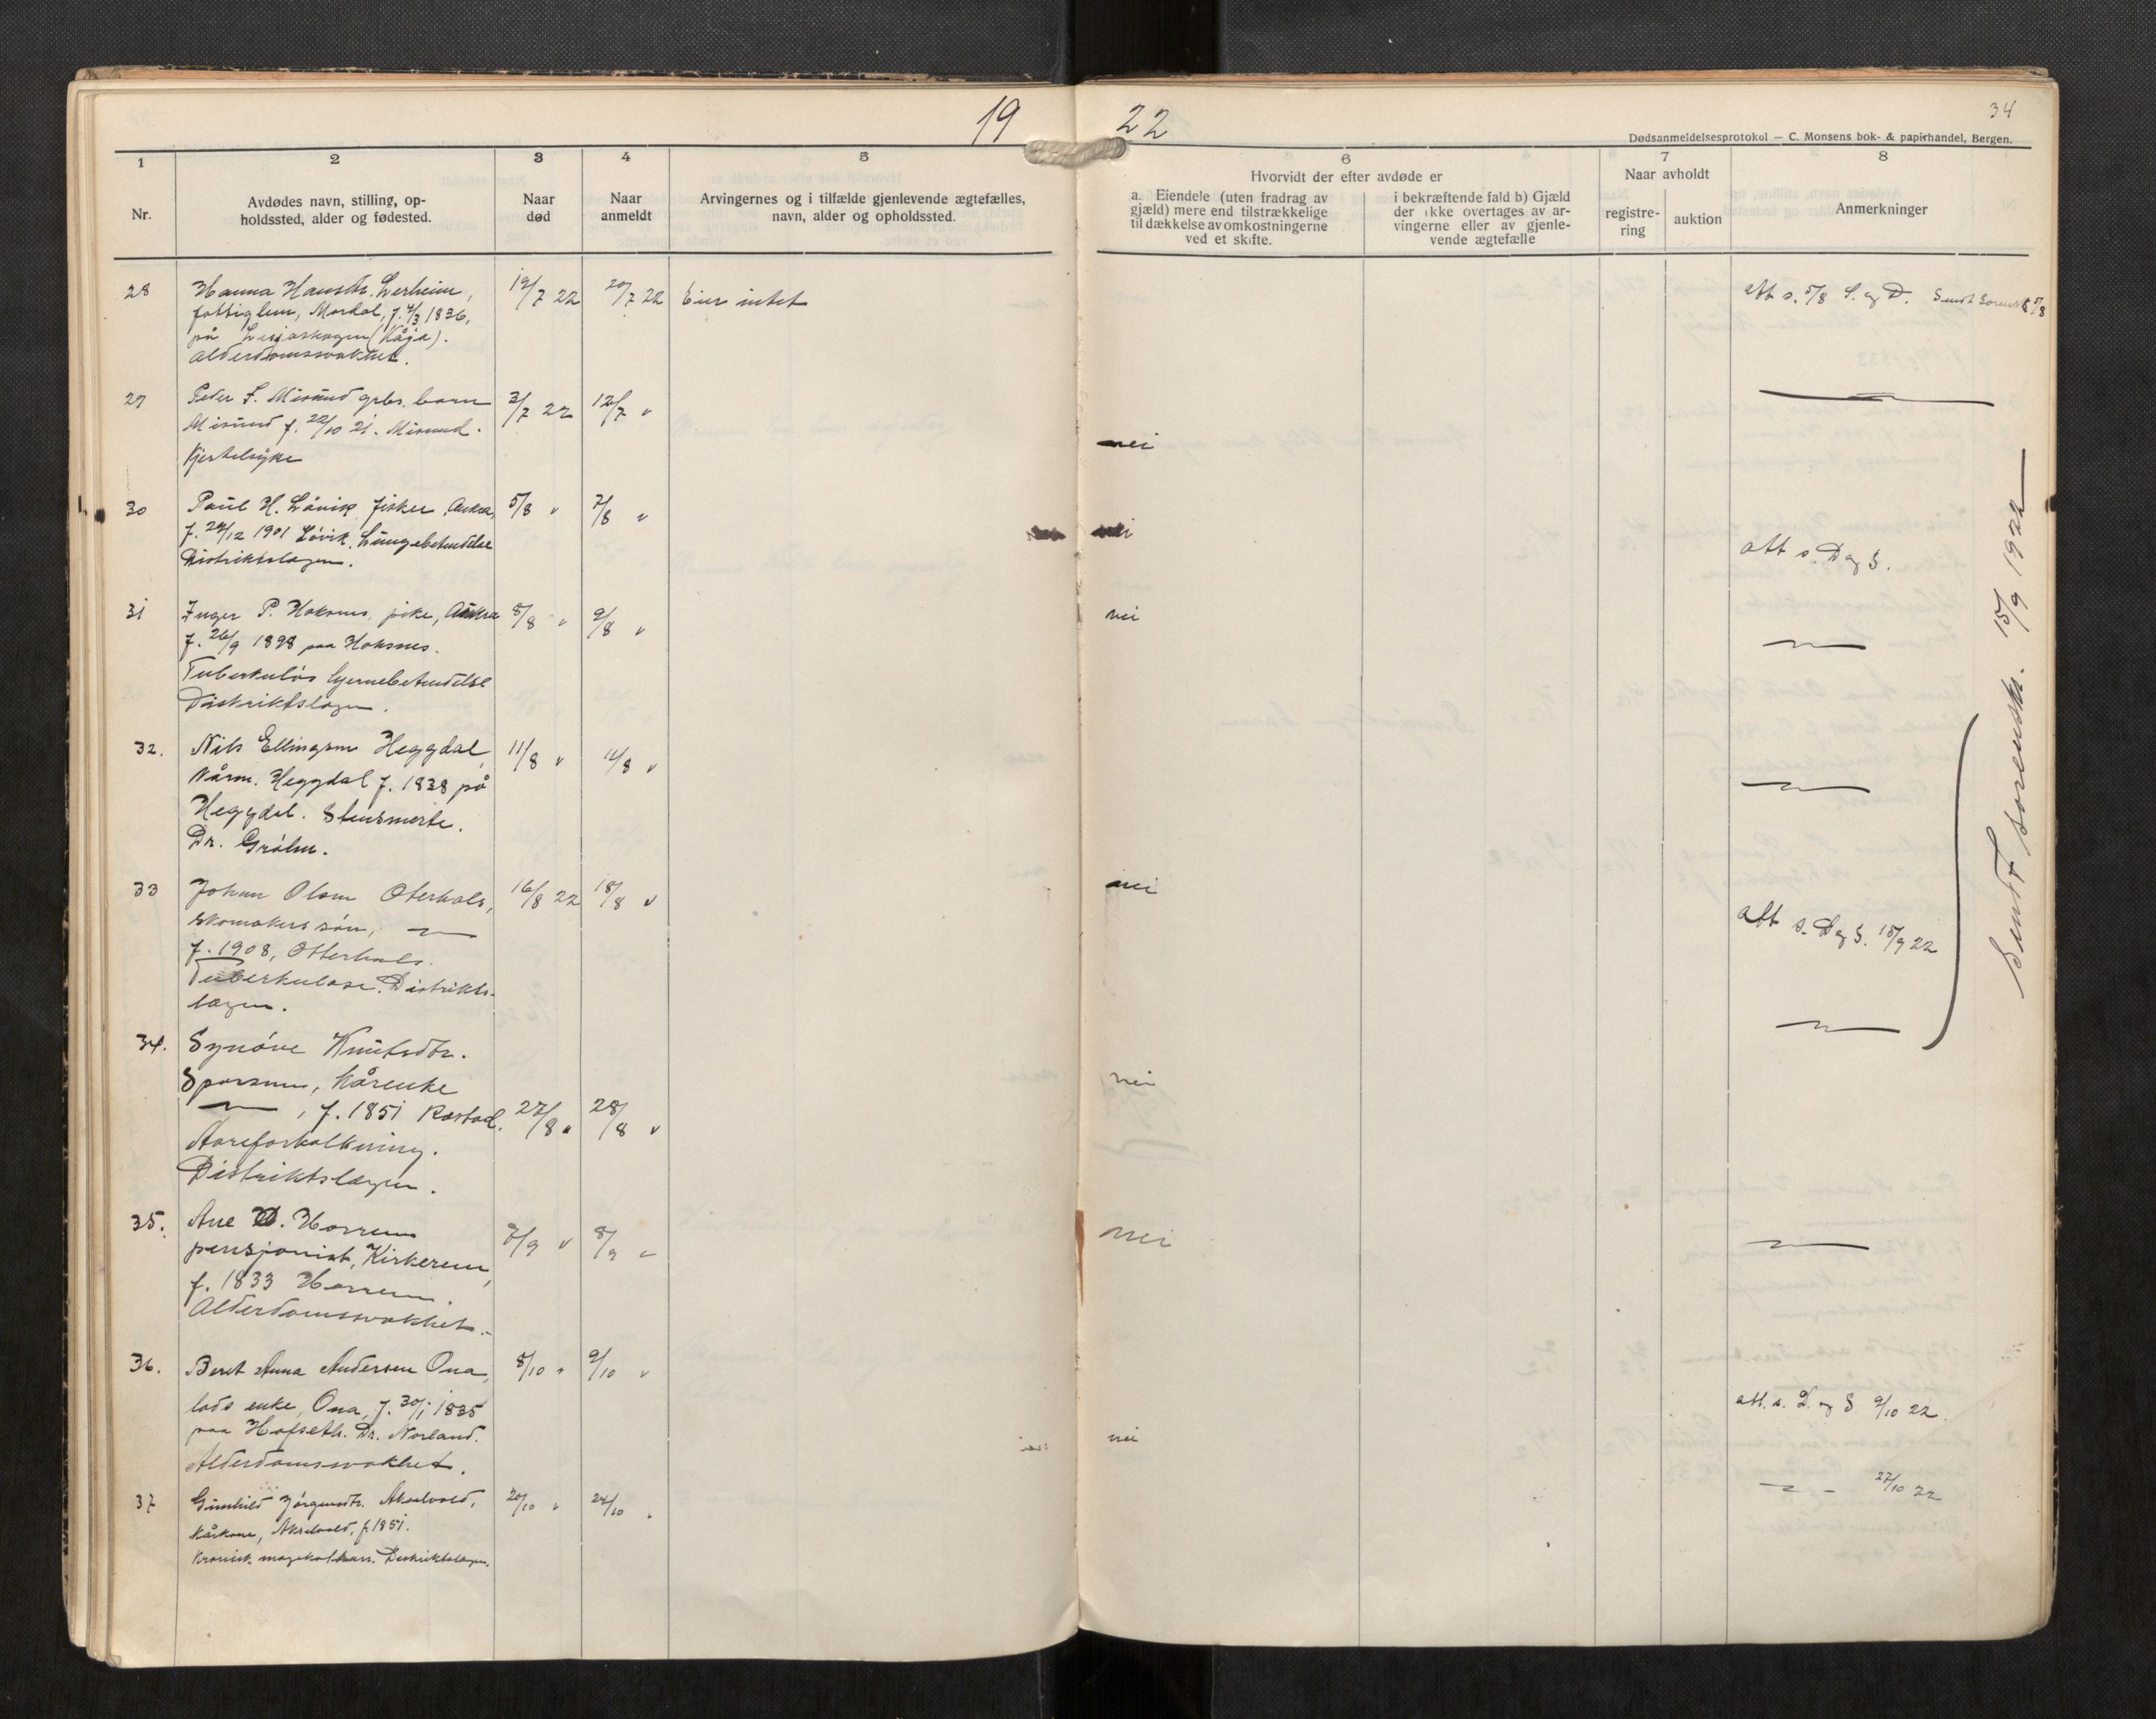 19 22
34
Dødsanmeldelsesprotokol — C. Monsens bok- & papirhandel, Bergen.
1 2 3 4 5 6 7 8
Nr.
Avdødes navn, stilling, op-
holdssted, alder og fødested.
Naar
død
Naar
anmeldt
Arvingernes og i tilfælde gjenlevende ægtefælles,
navn, alder og opholdssted.
Hvorvidt der efter avdøde er
a. Eiendele (uten fradrag av
gjæld) mere end tilstrækkelige
til dækkelse av omkostningerne
ved et skifte.
i bekræftende fald b) Gjæld
der ikke overtages av ar-
vingerne eller av gjenle-
vende ægtefælle
Naar avholdt
registre-
ring
auktion
Anmerkninger
28 Hanna Hansdtr. Lerheim, 19/7 22 20/7 22 Eier intet att s. 5/8 S. og D. Sendt Sorenskr 5/8
fattiglem, Mordal, f. 4/3 1836,
på Lesjaskogen (Kåja).
Alderdomssvakhet.
29 Peder F. Misund grbr. barn 3/7 22 12/7 "
Misund f. 22/10 21. Misund.
Kjertelsyke nei
30 Paul H. Lövik fisker, Aukra, 5/8 " 7/8 " nei
f. 29/12 1901 Lövik. Lungebetændelse
Distriktslægen. att s. D og S.
31 Inger P. Hoksnes, pike, Aukra 8/8 " 9/8 " nei
f. 26/9 1898 paa Hoksnes.
Tuberkuløs hjernebetændelse
Distriktslægen.
32. Nils Ellingsen Heggdal, 11/8 " 11/8 "
Kårm. Heggdal f. 1838 på
Heggdal. Stensmerte.
Dr. Gröhn.
33 Johan Olsen Oterhals, 16/8 22 18/8 " nei
skomakers sön, —
f. 1908, Otterhals. att s. D og S. 15/9 22
Tuberkulose. Distrikts-
lægen.
Sendt sorenskr. 15/9 1922
34. Synöve Knutsdtr.
Sporsem, Kårenke nei
— , f. 1851 Rastad. 27/8 " 28/8 "
Aareforkalkning.
Distriktslægen.
35. Ane O. Horrem 7/9 " 8/9 " nei
pensjonist, Kirkerem,
f. 1833 Horrem.
Alderdomssvakhet.
36. Beret Anna Andersen Ona, 8/10 " 9/10 "
lods enke, Ona, f. 30/1 1835 att. s. D. og S 9/10 22.
paa Hofseth. Dr. Norland. nei
Alderdomssvakhet.
37 Gunhild Jörgensdtr. Akselvold, 20/10 " 24/10 " — 27/10 22
Kårkone, Akselvold, f. 1851.
Kronisk magekatharr. Distriktslægen.